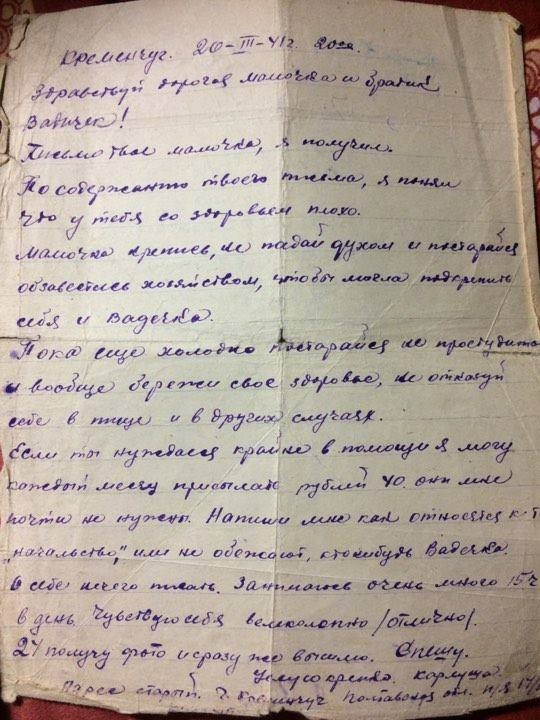 Кременчуг. 20-III-41г. 20
Здравствуй дорогая мамочка и братик
Вадичек!
Письмо твое мамочка, я получил.
По содержанию твоего письма, я понял
что у тебя со здоровьем плохо.
Мамочка крепись, не падай духом и постарайся
обзавестись хозяйством, чтобы могла подкрепить
себя и Вадечка.
Пока еще холодно постарайся не простудить
и вообще береги свое здоровье, не отказуй
себе в пище и в других случаях.
Если ты нуждаеся крайне в помощи я могу
каждый месяц присылать рублей 40 они мне
почти не нужны. Напиши мне как относятся к т
"начальство", или не обежают, ктонибудь Вадечка.
О себе нечего писать. Занимаюсь очень много 15 ч
в день. Чувствую себя великолепно /отлично/.
24 получу фото и сразу же вышлю. Спешу.
Целую крепко. Карлуша.
старый. г. Кременчуг Полтавская обл. п/я